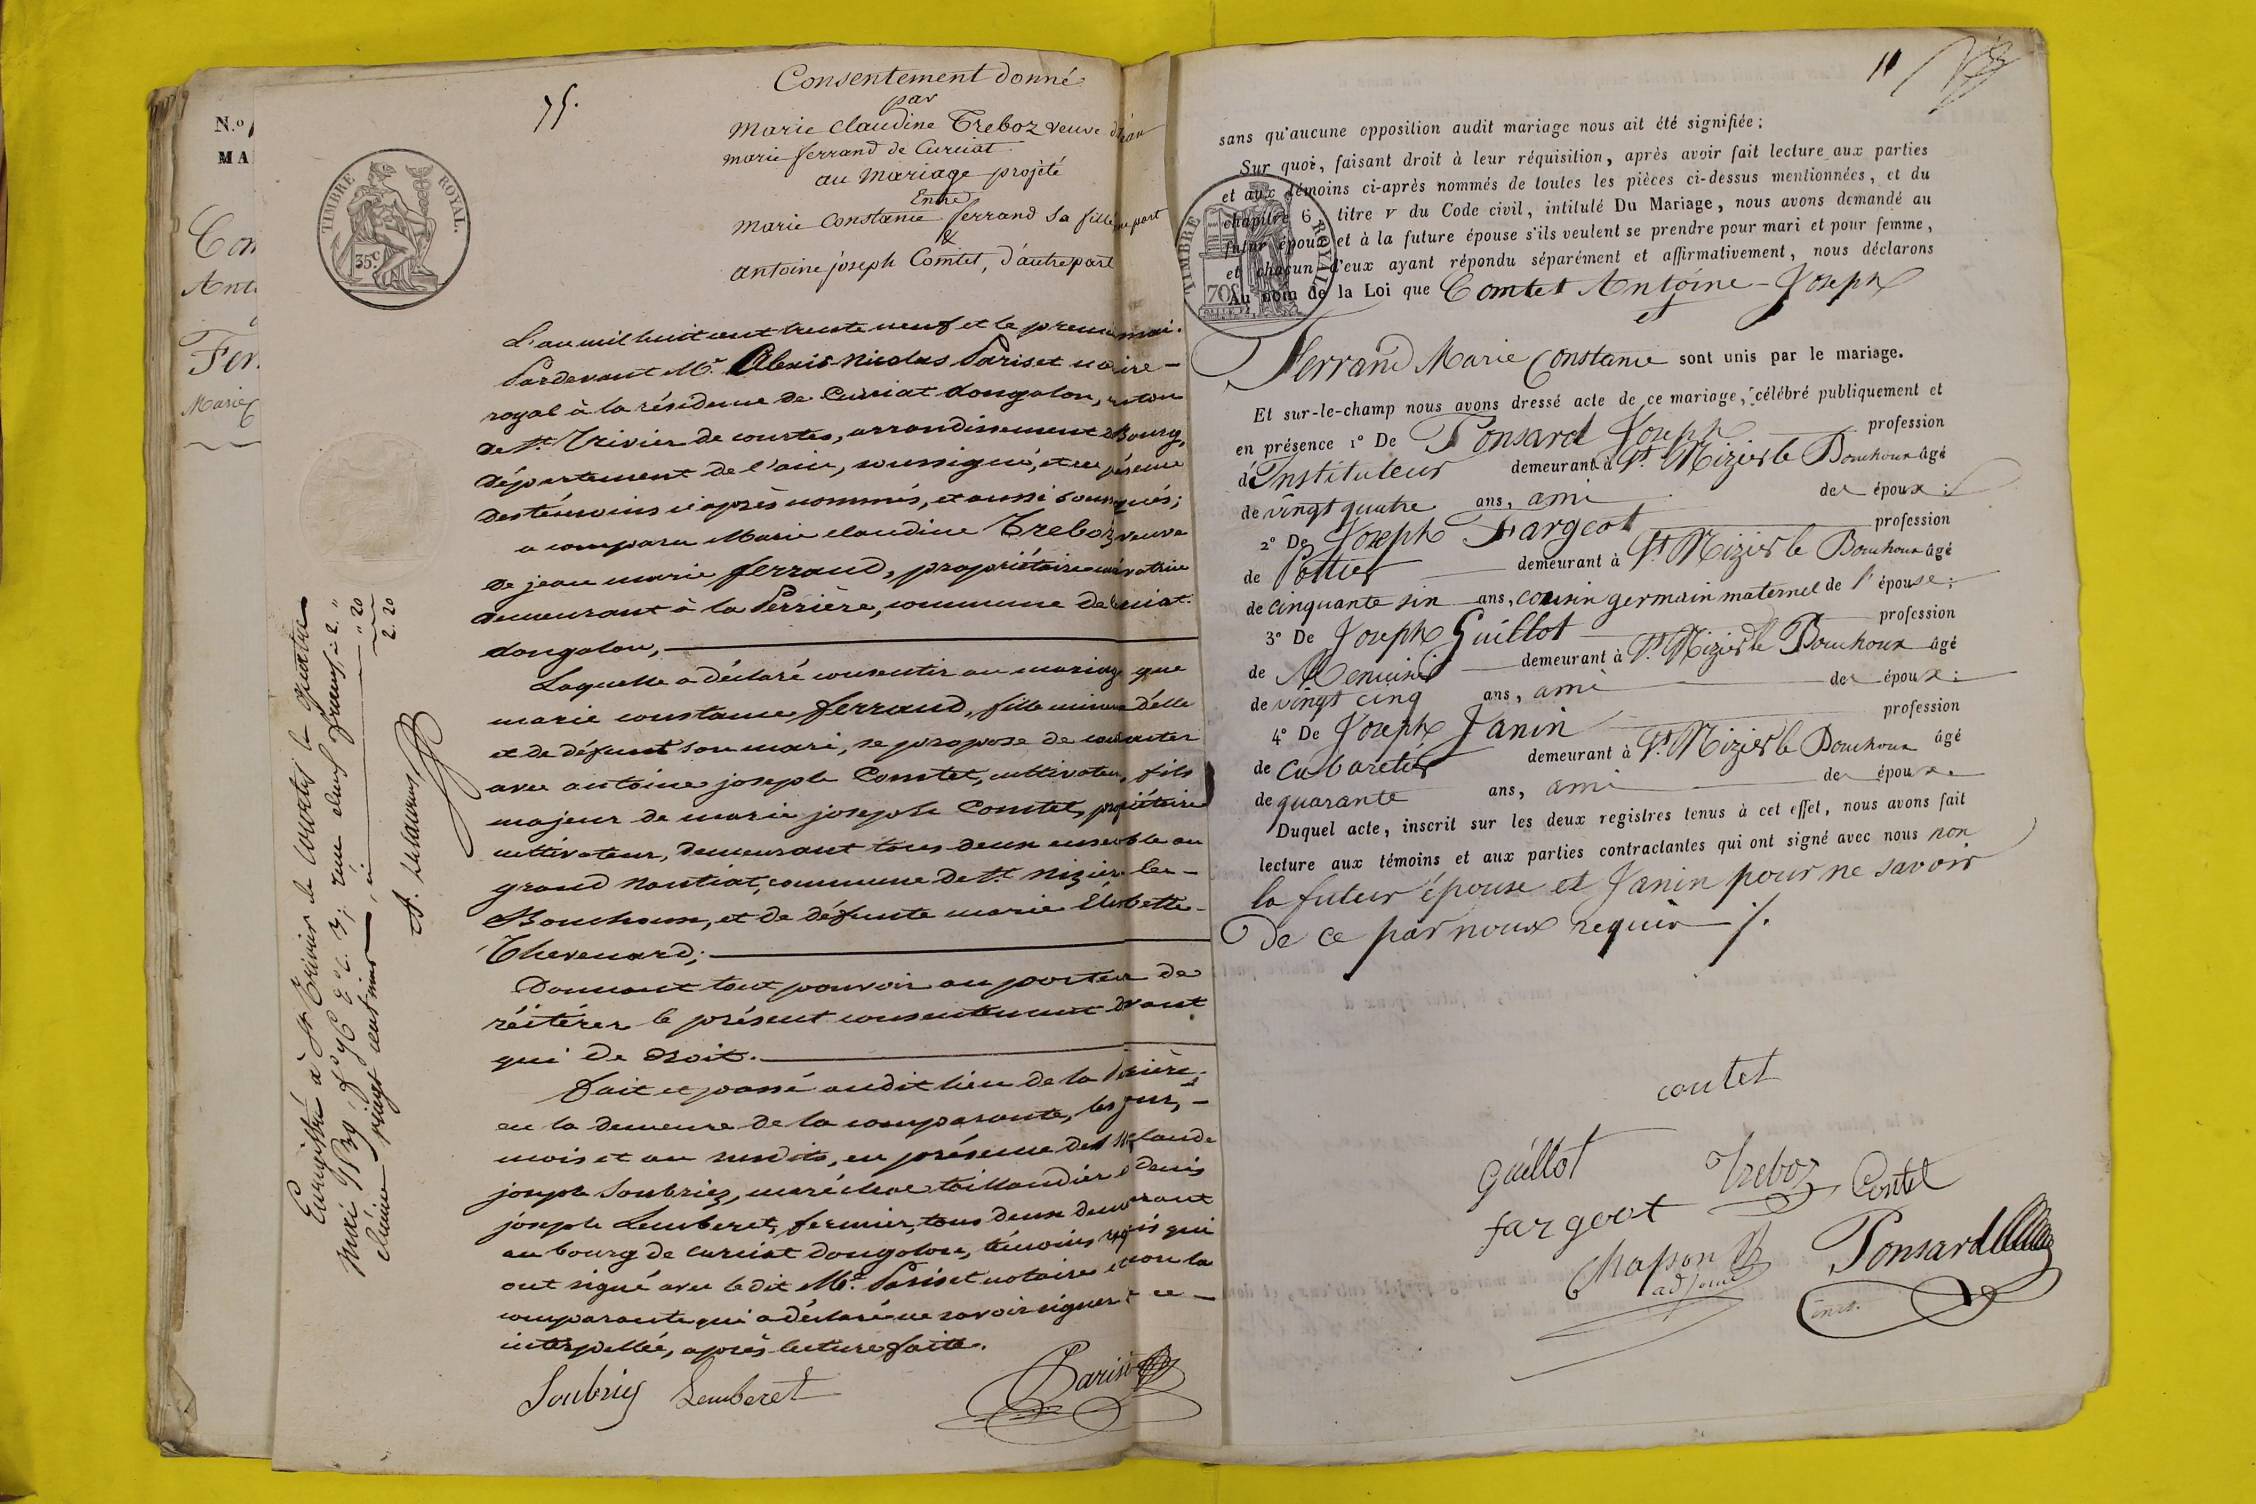 N.º
MA
Com
Anto
Fer
Marie C
75.
TIMBRE ROYAL.
35c
Consentement donné
par
Marie Claudine Treboz veuve de jean
marie ferrand de Curciat
au Mariage projeté
Entre
Marie Constance ferrand sa fille une part
&
antoine joseph Comtet, d'autre part
L'an mil huit cent trente neuf et le premier mai.
Pardevant Mr. Alexis Nicolas Pariset notaire
royal à la résidence de Curciat dongalon, canton
de St. Trivier de courtes, arrondissement de Bourg,
département de l'ain, soussigné, et en présence
des témoins ci après nommés, et aussi soussignés;
a comparu Marie Claudine Treboz veuve
de jean marie ferrand, propriétaire cultivatrice
demeurant à la Perrière, commune de Curciat
dongalon,
Laquelle a déclaré consentir au mariage que
marie constance ferrand, fille mineure d'elle
et de défunt son mari, se propose de contracter
avec antoine joseph Comtet, cultivateur, fils
majeur de marie joseph Comtet, propriétaire
cultivateur, demeurant tous deux ensemble au
grand Nantiat, commune de St. Nizier le
Bouchoux, et de défunte marie Elisabette
Thevenard;
Donnant tout pouvoir au porteur de
réitérer le présent consentement devant
qui de droit.
fait et passé audit lieu de la Perrière,
en la demeure de la comparante, les jour,
mois et an susdits, en présence des Srs. Claude
joseph Soubriez, maréchal taillandier & denis
joseph Lemberet, fermier, tous deux demeurant
au bourg de Curciat dongalon, témoins requis qui
ont signé avec le dit Mr. Pariset notaire et non la
comparante qui a déclaré ne savoir signer de ce
interpellée, après lecture faite.
Soubriez Lemberet Pariset
Enregistré à St Trivier de Courtes le quatre
mai 1839 f° 96 v° c. 7. reçu deux francs = 2. "
dixième vingt centimes " 20
2. 20
11
sans qu'aucune opposition audit mariage nous ait été signifiée;
Sur quoi, faisant droit à leur réquisition, après avoir fait lecture aux parties
et aux témoins ci-après nommés de toutes les pièces ci-dessus mentionnées, et du
chapitre 6, titre v du Code civil, intitulé Du Mariage, nous avons demandé au
futur époux et à la future épouse s'ils veulent se prendre pour mari et pour femme,
et chacun d'eux ayant répondu séparément et affirmativement, nous déclarons
Au nom de la Loi que Comtet Antoine-Joseph
et
TIMBRE ROYAL
70c
Ferrand Marie Constance sont unis par le mariage.
Et sur-le-champ nous avons dressé acte de ce mariage, célébré publiquement et
en présence 1º De Ponsard Joseph profession
d'Instituteur demeurant à St. Nizier le Bouchoux âgé
de vingt quatre ans, ami de époux;
2º De Joseph Fargeot profession
de Potier demeurant à St. Nizier le Bouchoux âgé
de cinquante six ans, cousin germain maternel de l'épouse;
3º De Joseph Guillot profession
de Menuisier demeurant à St. Nizier le Bouchoux âgé
de vingt cinq ans, ami de époux;
4º De Joseph Janin profession
de cabaretier demeurant à St. Nizier le Bouchoux âgé
de quarante ans, ami de époux.
Duquel acte, inscrit sur les deux registres tenus à cet effet, nous avons fait
lecture aux témoins et aux parties contractantes qui ont signé avec nous non
la futur épouse et Janin pour ne savoir
de ce par nous requis ./.
contet
Guillot Treboz Contet
fargeot
Chapon Ponsard
adjoint